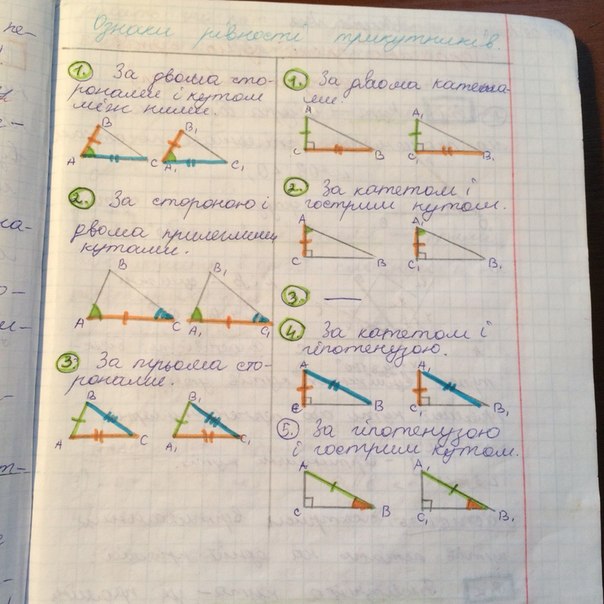 Ознаки рівності трикутників.
1. За двома сто-
ронами і кутом
між ними.
A B C A₁ B₁ C₁
2. За стороною і
двома прилеглими
кутами.
A B C A₁ B₁ C₁
3. За трьома сто-
ронами.
A B C A₁ B₁ C₁
1. За двома катета-
ми
A C B A₁ C₁ B₁
2. За катетом і
гострим кутом.
A C B A₁ C₁ B₁
3. —
4. За катетом і
гіпотенузою.
A C B A₁ C₁ B₁
5. За гіпотенузою
і гострим кутом.
A C B A₁ C₁ B₁